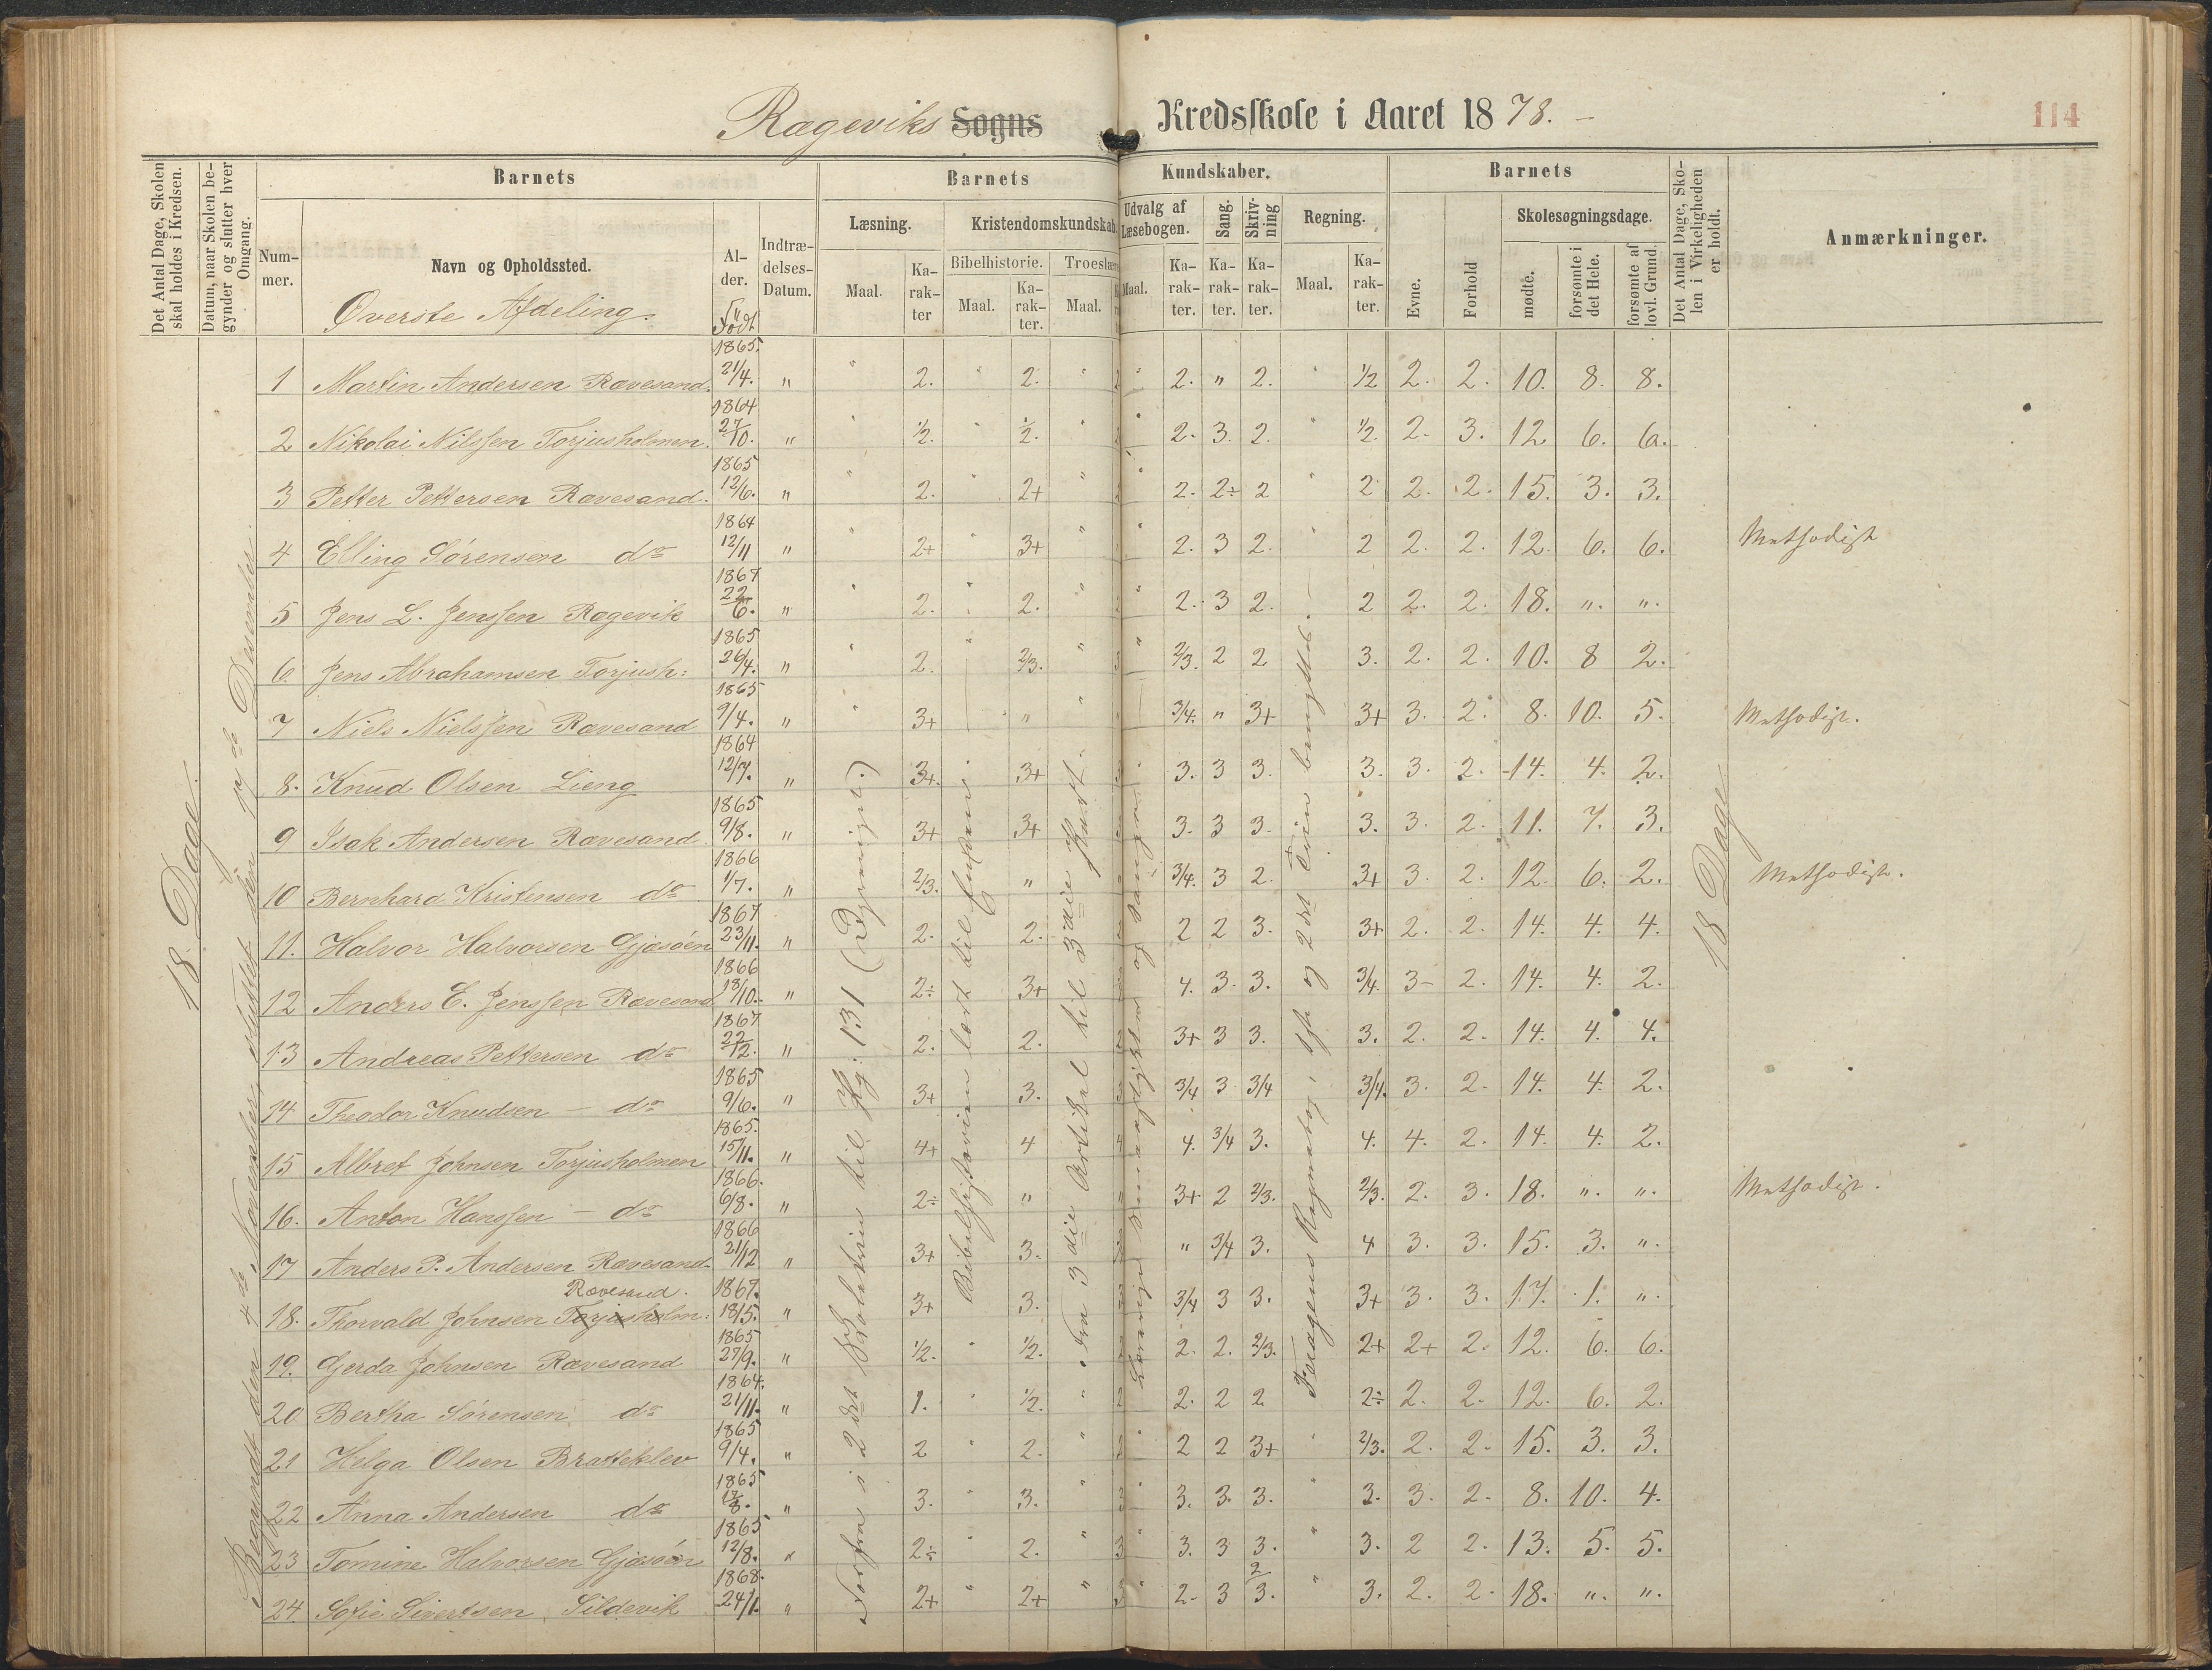 Rageviks Sogns Kredsskole i Aaret 1878. –
114
Det Antal Dage, Skolen skal holdes i Kredsen.
Datum, naar Skolen begynder og slutter hver Omgang.
Barnets
Barnets
Kundskaber.
Barnets
Det Antal Dage, Skolen i Virkeligheden er holdt.
Anmærkninger.
Nummer.
Navn og Opholdssted.
Alder.
Indtrædelses-Datum.
Læsning.
Kristendomskundskab.
Udvalg af Læsebogen.
Sang.
Skrivning
Regning.
Evne.
Forhold
Skolesøgningsdage.
Maal.
Karakter
Bibelhistorie.
Troeslære
mødte.
forsømte i det Hele.
forsømte af lovl. Grund.
Øverste Afdeling.
Født
18 Dage.
Begyndt den 4de November, sluttet den
December.
18 Dage
1 Martin Andersen Ravesand. 1865 21/4. " 2. 2. 2. " 2. 1/2 2. 2. 10. 8. 8.
2 Nikolai Nilssen Torjusholmen. 1864 27/10. " 1/2. 1/2. 2. 3. 2. 1/2. 2. 3. 12 6. 6.
3 Petter Pettersen Ravesand. 1865 12/6. " 2. 2+ 2. 2÷ 2 2 2. 2. 15. 3. 3.
4 Elling Sørensen do 1864 12/11 " 2+ 3+ 2. 3 2. 2 2. 2. 12. 6. 6. Methodist
5 Jens L. Jenssen Ragevik 1867 22/6. " 2. 2. 2. 3 2. 2 2. 2. 18. ". ".
6 Jens Abrahamsen Torjush: 1865 26/4. " 2. 2/3. 2/3. 2 2 3. 2. 2. 10. 8 2.
7 Niels Nielssen Ravesand 1865 9/4. " 3+ " 3/4. " 3+ 3+ 3. 2. 8. 10. 5. Methodist.
8. Knud Olsen Lieng 1864 12/7. " 3+. 3+ 3. 3 3. 3. 3. 2. 14. 4. 2.
9 Isak Andersen Ravesand 1865 9/8. " 3+ 3+ 3. 3 3. 3. 3. 2. 11. 7. 3.
10 Bernhard Kristensen do 1866 1/7. " 2/3. " 3/4. 3 2. 3+ 3. 2. 12. 6. 2. Methodist.
11. Halvor Halvorsen Gjøsøen 1867 23/11. " 2. 2. 2 2 3. 3+ 2. 2. 14. 4. 4.
12 Anders E. Jenssen Ravesand 1866 18/10. " 2÷ 3+ 4. 3. 3. 3/4. 3- 2. 14. 4. 2.
13 Andreas Pettersen do 1867 22/12. " 2. 2. 3+ 3 3. 3. 2. 2. 14. 4. 4.
14 Theodor Knudsen – do 1865 9/6. " 3+ 3. 3/4 3 3/4 3/4. 3. 2. 14. 4. 2.
15 Albret Johnsen Torjusholmen 1865. 15/11. " 4+ 4 4. 3/4 3. 4. 4. 2. 14. 4. 2.
16. Anton Hanssen – do 1866. 6/8. " 2÷ " 3+ 2 2/3. 2/3. 2. 3. 18. ". ". Methodist.
17 Anders P. Andersen Ravesand. 1866 21/12 " 3+ 3. " 3/4 3. 4 3. 3. 15. 3. ".
Ravesand.
18. Thorvald Johnsen Torjusholm: 1867. 18/5. " 3+ 3. 3/4 3 3. 3+ 3. 3. 17. 1. ".
19. Gerda Johnsen Ravesand 1865 27/9. " 1/2. 1/2. 2. 2. 2/3. 2+ 2+ 2. 12. 6. 6.
20 Bertha Sørensen do 1864. 21/11. " 1. 1/2. 2. 2 2 2÷ 2. 2. 12. 6. 2.
21 Helga Olsen Bratteklev 1865 9/4. " 2 2. 2 2 3+ 2/3. 2. 2. 15. 3. 3.
22 Anna Andersen do 1865 17/8. " 3. 3. 3. 3. 3. 3. 3. 2. 8. 10. 4.
23 Tomine Halvorsen Gjøsøen 1865 12/8. " 2÷ 2. 3. 3 3. 3. 2 2. 13. 5. 5.
24. Sofie Sivertsen, Sildevik 1868. 24/1. " 2+ 2+ 2. 3 2/3. 3. 2. 2. 18. ". ".